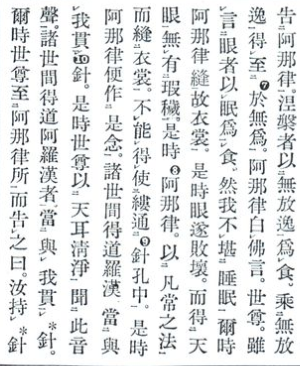 告阿那律。涅槃者以無放逸爲食。乘無放
逸得至❼於無爲。阿那律白佛言。世尊。雖
言眼者以眠爲食。然我不堪睡眠。爾時
阿那律縫故衣裳。是時眼遂敗壞。而得天
眼無有瑕穢。是時❽阿那律。以凡常之法
而縫衣裳。不能得使縷通❾針孔中。是時
阿那律便作是念。諸世間得道羅漢。當與
我貫❿針。是時世尊以天耳清淨聞此音
聲。諸世間得道阿羅漢者。當與我貫*針。
爾時世尊至阿那律所而告之曰。汝持*針